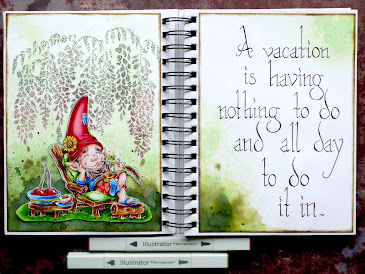 A vacation
is having
nothing to do
and all day
to do
it in.
illustrator
illustrator